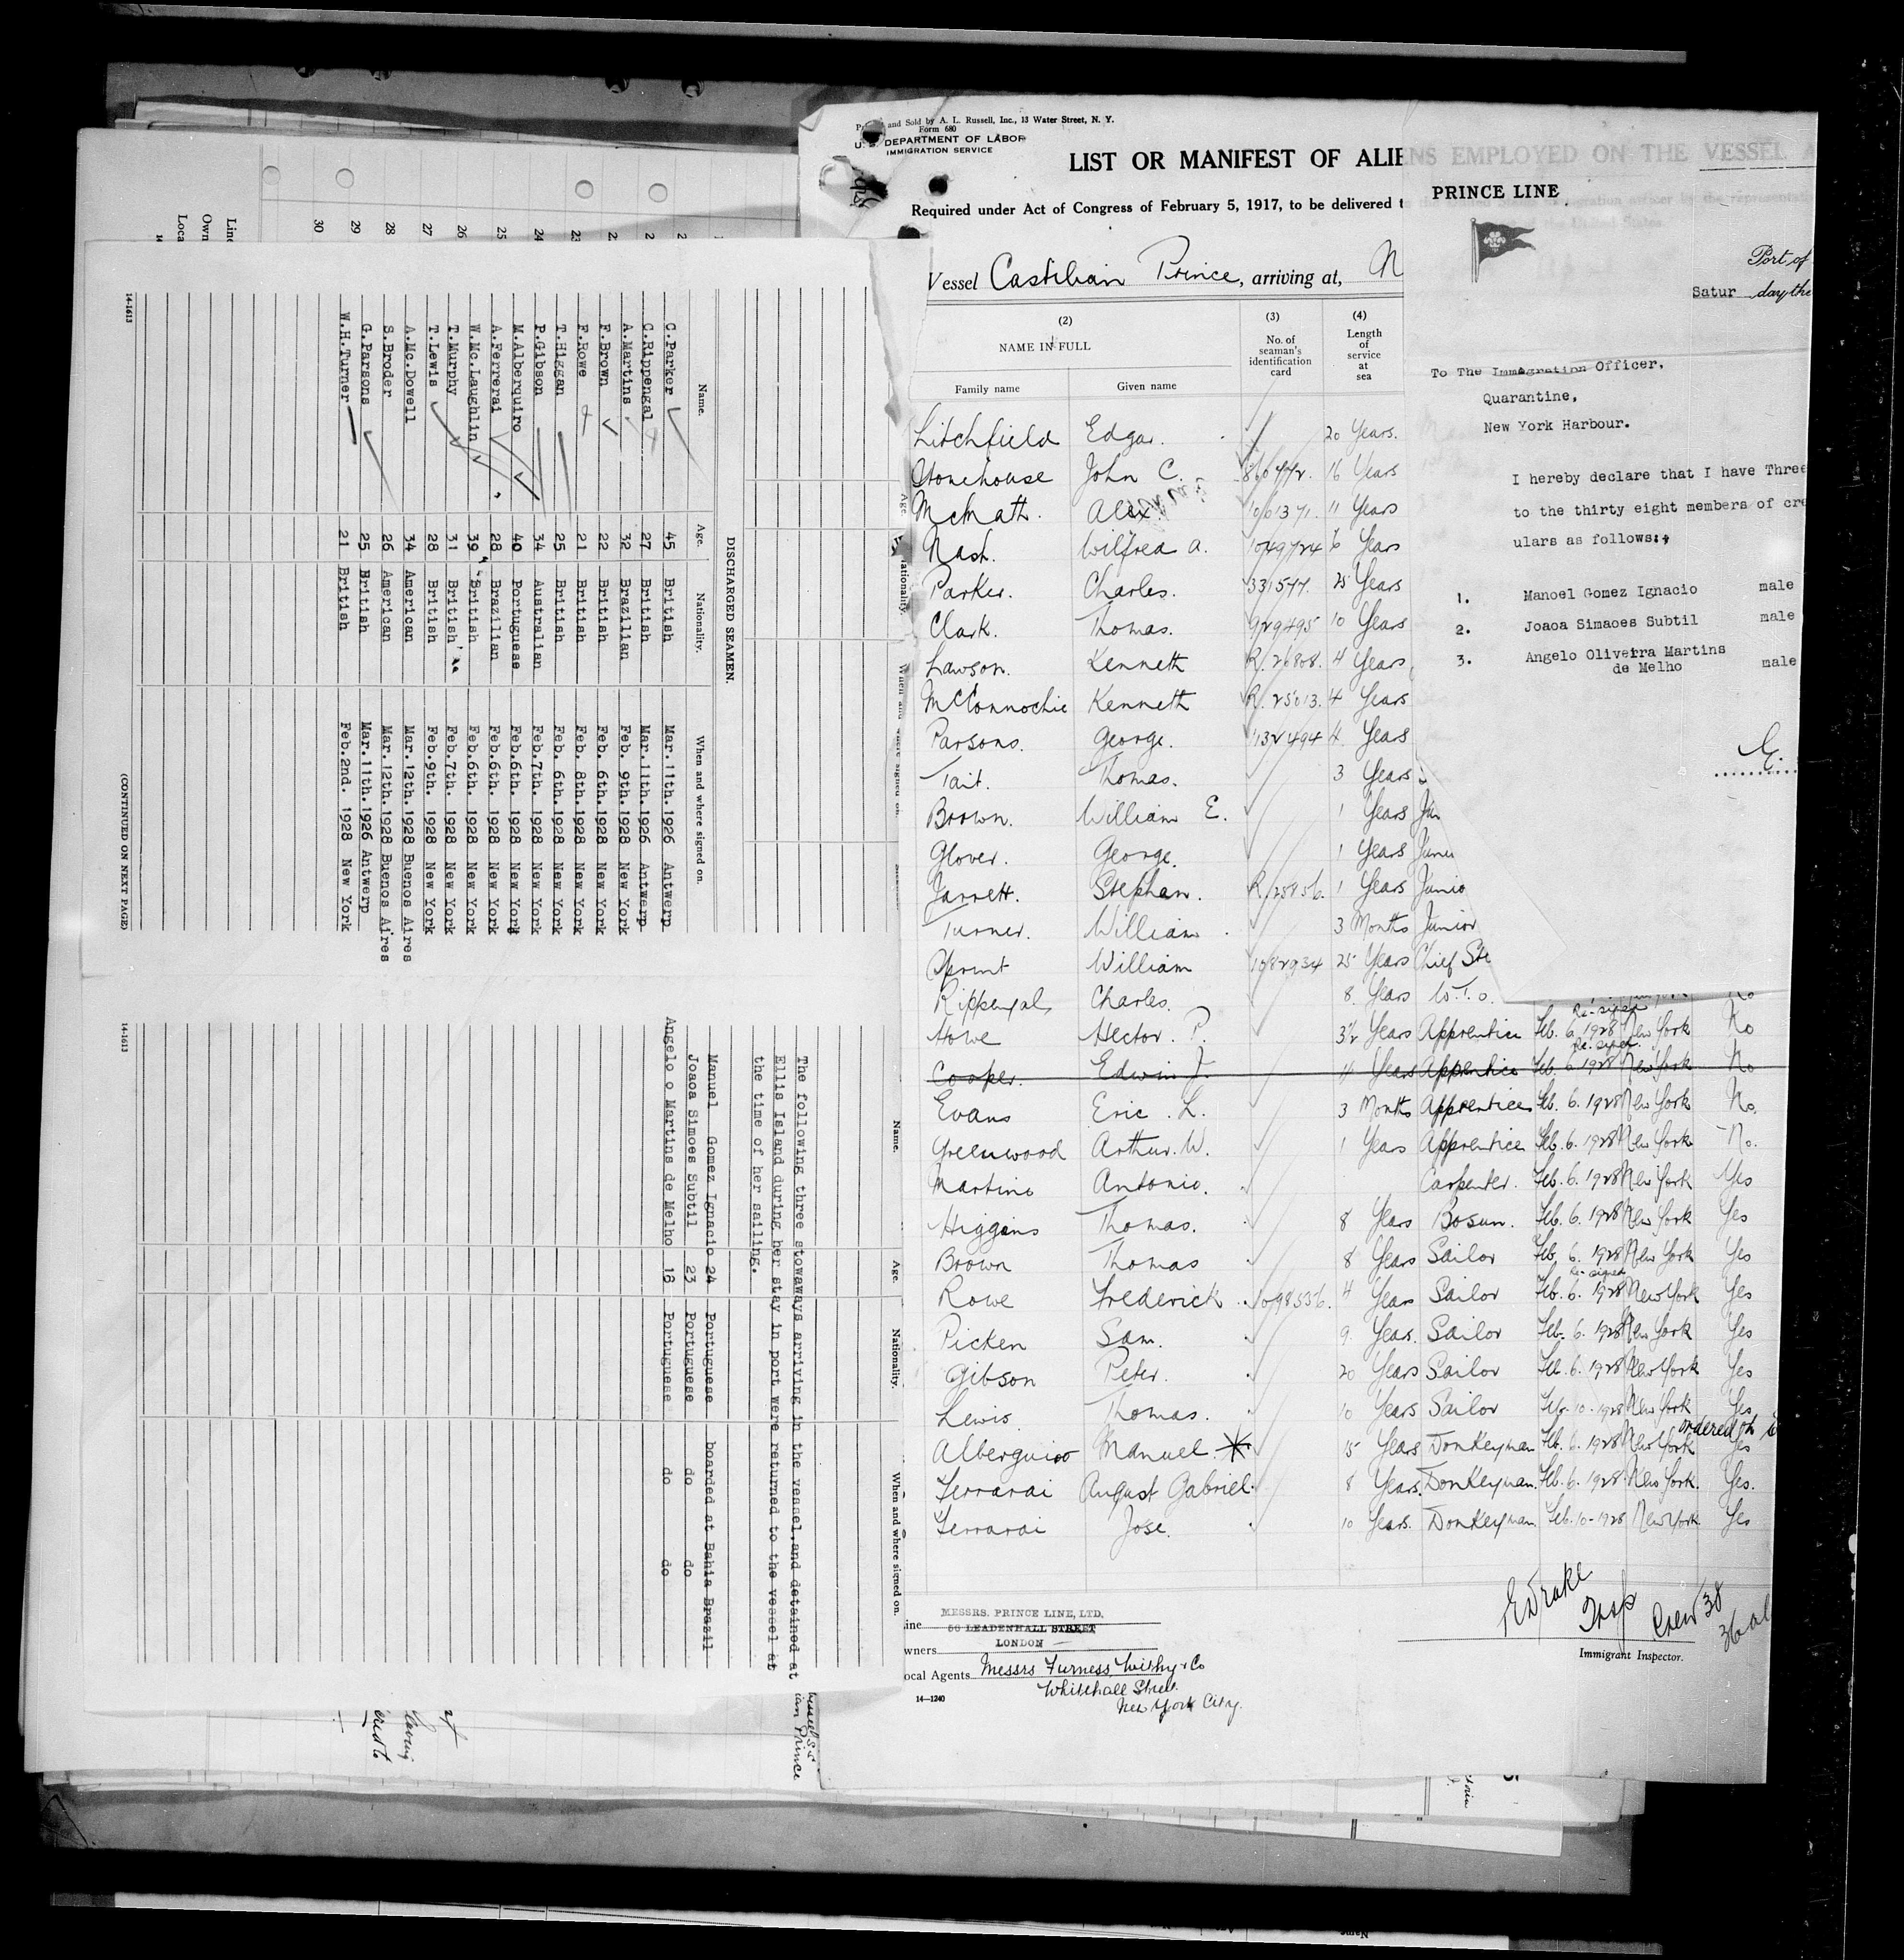 30
29
28
27
26
25
24
Line
Own
Loca
DISCHARGED SEAMEN.
Name. Age. Nationality. When and where signed on.
C.Parker 45 British Mar.11th.1926 Antwerp
C.Rippengal 27 British Mar.11th.1926 Antwerp
A.Martins 32 Brazilian Feb. 9th.1928 New York
F.Brown 22 British Feb. 6th.1928 New York
F.Rowe 21 British Feb. 8th.1928 New York
T.Higgan 25 British Feb. 6th.1928 New York
P.Gibson 34 Australian Feb.7th. 1928 New York
M.Alberquiro 40 Portuguese Feb.6th. 1928 New York
A.Ferrerai 28 Brazilian Feb.6th. 1928 New York
W.Mc.Laughlin 39 British Feb.6th. 1928 New York
T.Murphy 31 British Feb.7th. 1928 New York
T.Lewis 28 British Feb.9th. 1928 New York
A.Mc.Dowell 34 American Mar.12th.1928 Buenos Aires
S.Broder 26 American Mar.12th.1928 Buenos Aires
G.Parsons 25 British Mar.11th.1926 Antwerp
W.H.Turner 21 British Feb.2nd. 1928 New York
14-1613
(CONTINUED ON NEXT PAGE)
Name. Age. Nationality. When and where signed on.
The following three stowaways arriving in the vessel,and detained at
Ellis Island during her stay in port were returned to the vessel at
the time of her sailing.
Manuel Gomez Ignacio 24 Portuguese boarded at Bahia Brazil
Joaoa Simoes Subtil 23 Portuguese do do
Angelo o Martins de Melho 18 Portuguese do do
14-1613
and Sold by A. L. Russell, Inc., 13 Water Street, N. Y.
Form 680
U. S. DEPARTMENT OF LABOR
IMMIGRATION SERVICE
LIST OR MANIFEST OF ALIENS EMPLOYED ON THE VESSEL
Required under Act of Congress of February 5, 1917, to be delivered t
Vessel Castilian Prince, arriving at, N
(2) (3) (4)
NAME IN FULL
No. of seaman's identification card
Length of service at sea
Family name Given name
Litchfield Edgar. 20 Years.
Stonehouse John C. 860472. 16 Years
McMath. Alex. 1061371. 11 Years
Nash. Wilfred A. 1049724 6 Years
Parker. Charles. 331577. 25 Years
Clark. Thomas. 929495 10 Years
Lawson. Kenneth R. 26808. 4 Years
McConnochie Kenneth R. 25013. 4 Years
Parsons. George. 132494 4 Years
Tait. Thomas. 3 Years
Brown. William E. 1 Years Jun
Glover. George. 1 Years Juni
Jarrett. Stephen. R.25856. 1 Years Junio
Turner. William. 3 Months Junior
Sprunt William 1082934 25 Years Chief Ste
Rippengal Charles. 8 Years W.T.O.
Re-signed
Howe Hector. P. 3½ Years Apprentice Feb. 6. 1928 New York No
Re-signed
Cooper. Edwin J. 4 Years Apprentice Feb. 6 1928 New York No
Evans Eric. L. 3 Months Apprentice Feb. 6. 1928 New York No.
Greenwood Arthur. W. 1 Years Apprentice Feb. 6. 1928 New York No.
Martino Antonio. Carpenter. Feb. 6. 1928 New York Yes
Higgins Thomas. 8 Years Bosun. Feb. 6. 1928 New York Yes
Brown Thomas 8 Years Sailor Feb. 6. 1928 New York Yes
Re-signed
Rowe Frederick 1098536. 4 Years Sailor Feb. 6. 1928 New York Yes
Picken Sam. 9. Years. Sailor Feb. 6. 1928 New York Yes
Gibson Peter. 20 Years Sailor Feb. 6. 1928 New York Yes
Lewis Thomas. 10 Years Sailor Feb. 10. 1928 New York Yes
ordered
Alberguiro Manuel * 15 Years Donkeyman Feb. 6. 1928 New York Yes
Ferrarai August Gabriel. 8 Years. Donkeyman. Feb. 6. 1928 New York. Yes.
Ferrarai Jose. 10 Years. Donkeyman Feb. 10-1928 New York Yes
E Drake
Insp
Crew 38
36 al
Immigrant Inspector.
MESSRS. PRINCE LINE, LTD.
56 LEADENHALL STREET
LONDON
ine
wners
ocal Agents Messrs Furness, Withy & Co
Whitehall Street.
New York City.
14-1240
PRINCE LINE
Port of
Satur day the
To The Immigration Officer,
Quarantine,
New York Harbour.
I hereby declare that I have Three
to the thirty eight members of cre
ulars as follows:
1. Manoel Gomez Ignacio male
2. Joaoa Simaoes Subtil male
3. Angelo Oliveira Martins
de Melho male